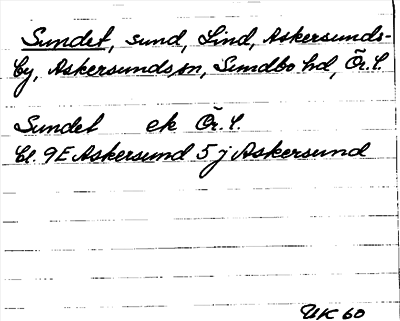 Sundet, sund, Lind, Askersunds-
by, Askersunds sn, Sundbo hd, Ör. l.
Sundet ek Ör. l.
Bl. 9E Askersund 5 j Askersund
UK 60